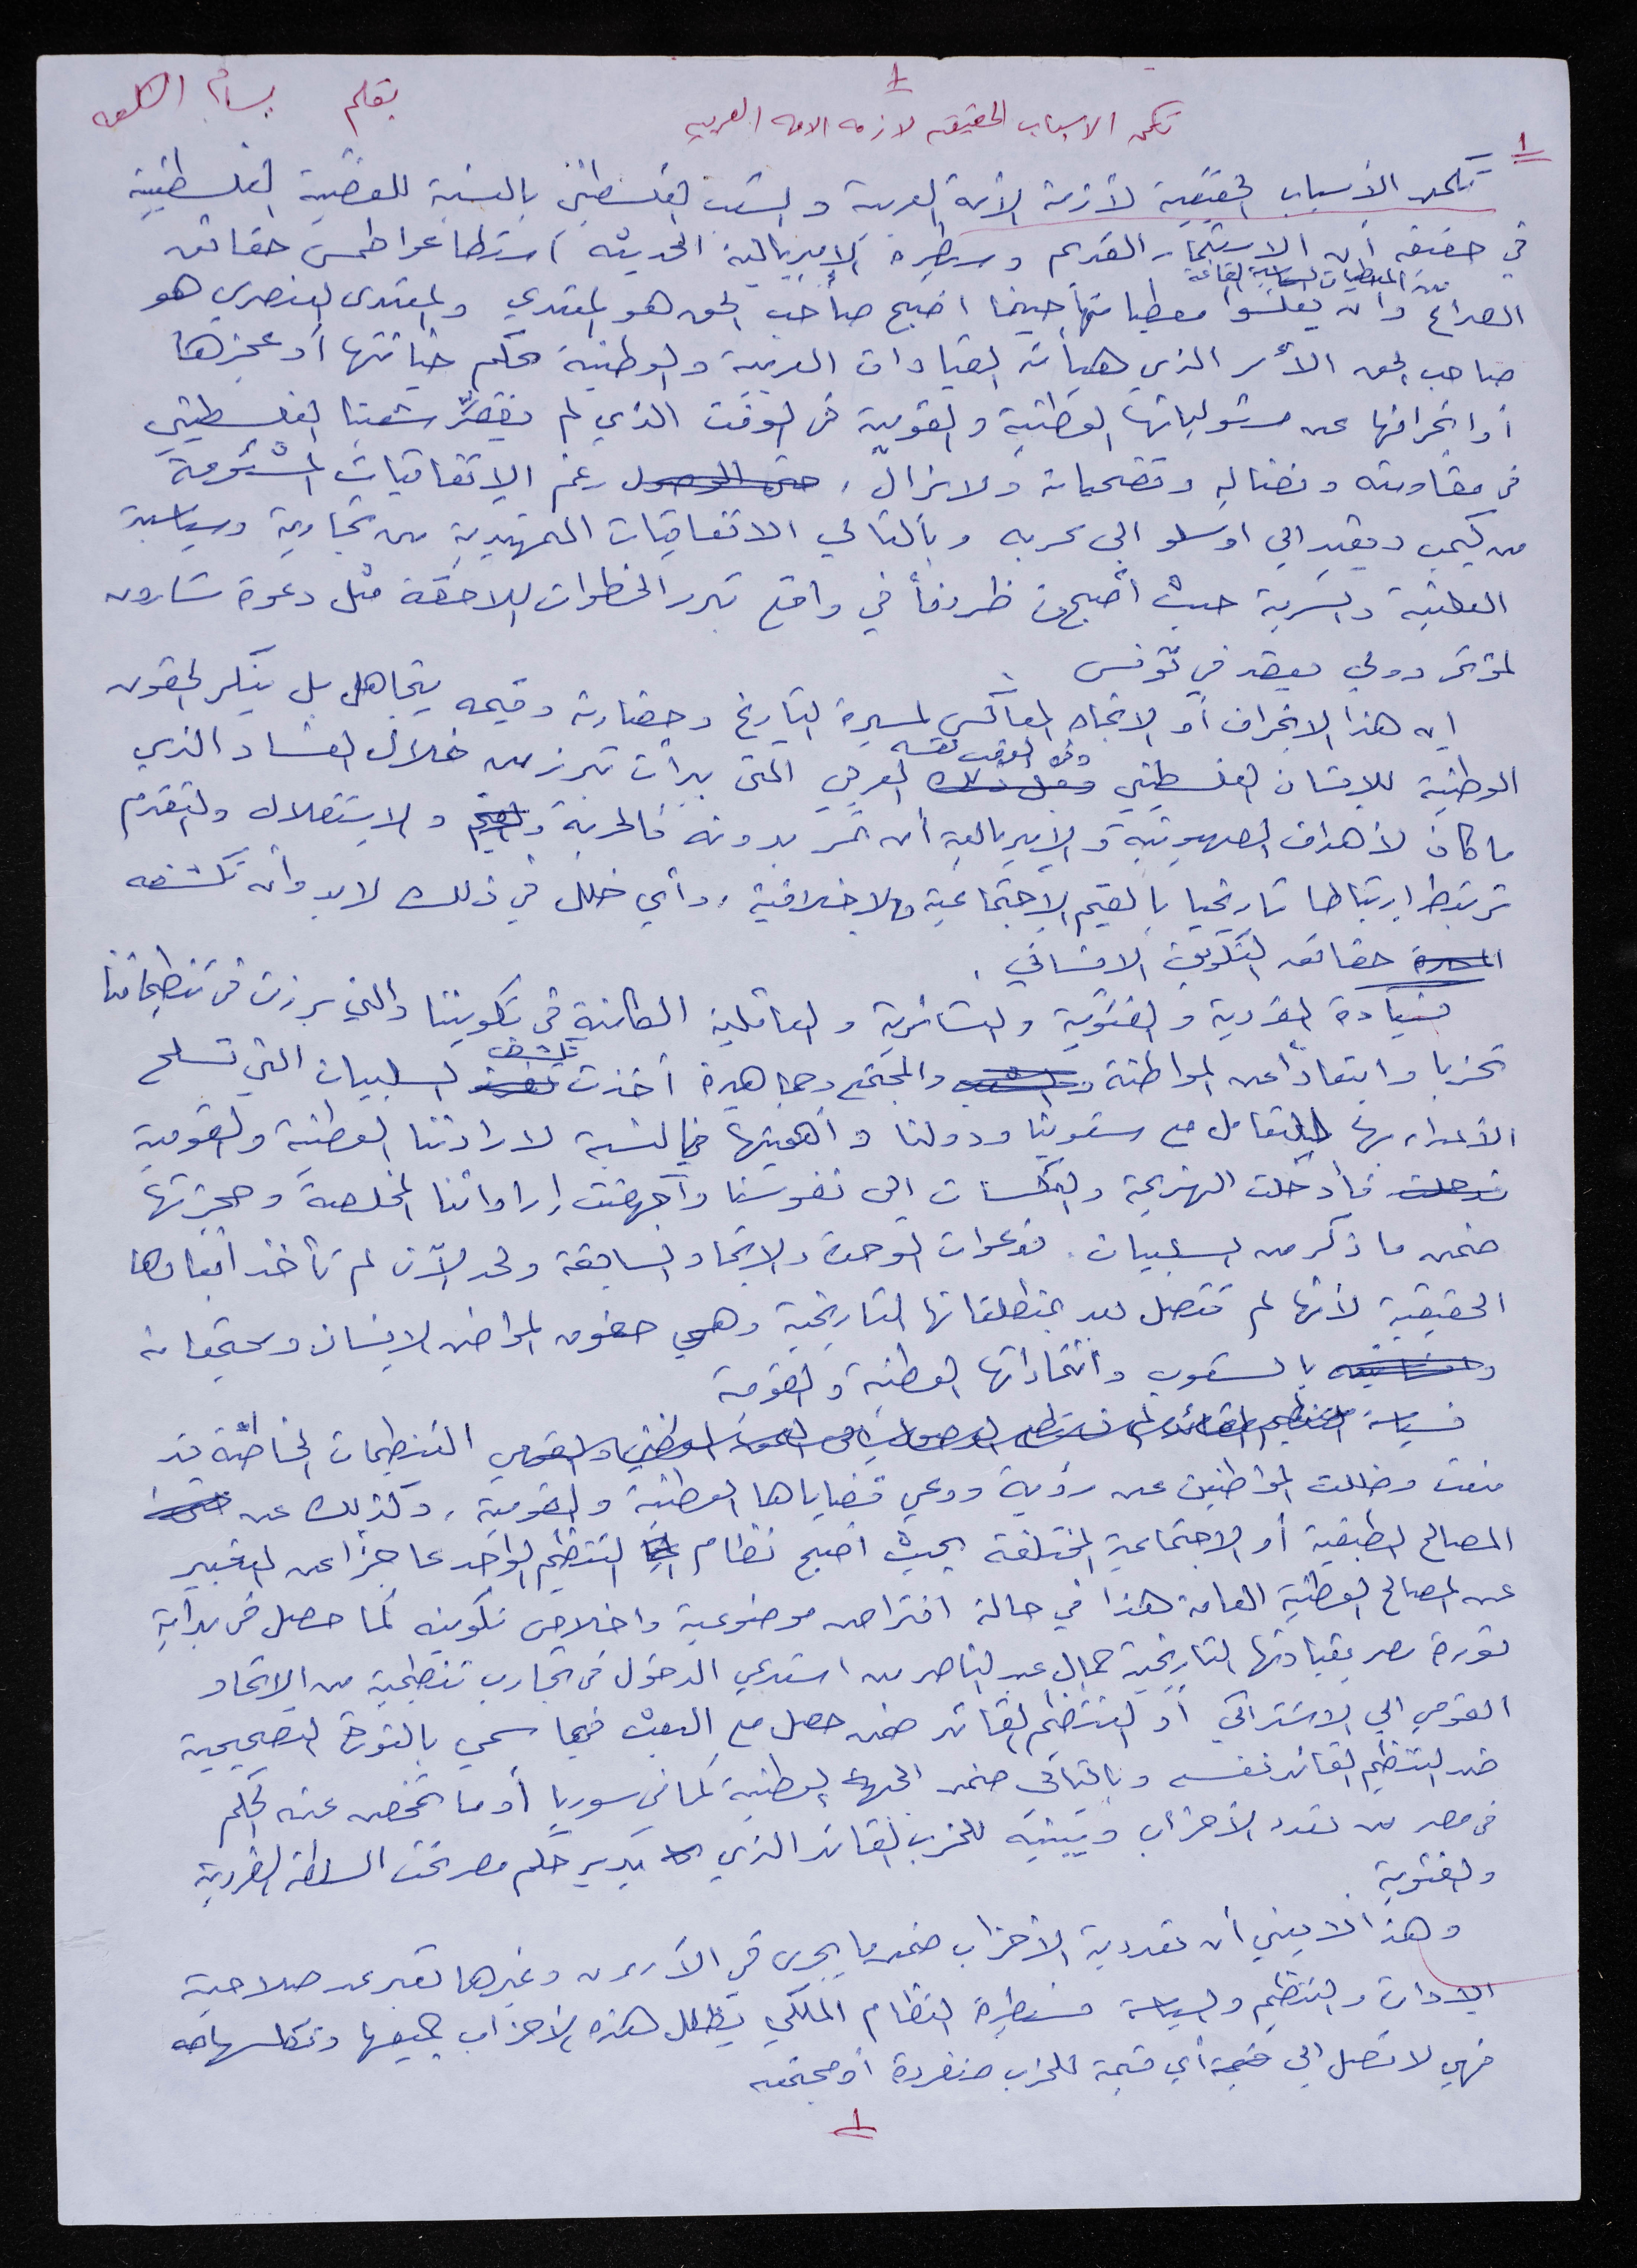 ١
بقلم بسام
تكمن الاسباب الحقيقه لازمه الامه العربيه
١
تكمن الأسباب الحقيقية لأزمة الأمة العربية والشعب الفلسطيني بالنسبة للقضية الفلسطينية
في حقيقه أن الاستعمار القديم وسيطرة الإمبريالية الحديثه استطاعوا طمس حقائق
الصراع وأن يعكسوا معطياتها حينما اضبح صاحب الحق هو المعتدي والمعتدى العنصري هو
صاحب الحق الأمر الذي هيأته القيادات العربية والوطنية بحكم خيانتها أو عجزها
أو انحرافها عن مسئولياتها الوطنية والقومية في الوقت الذي لم يقصّر شعبنا الفلسطيني
في مقاومته ونضاله وتضحياته ولا يزال، رغم الاتفاقيات المشئومة
من كمب ديفيد الى اوسلو الى وبالتالي الاتفاقيات التمهيدية من تجارية وسياسية
العلنية والسرية حيث أصبح ظروفاً في واقع تبرر الخطوات اللاحقة مثل دعوة شارون
لمؤتمر دولي يعقد في تونس
إن هذا الانحراف أو الاتجاه المعاكس لمسيرة التاريخ وحضارته وقيمه يتجاهل بل ينكر الحقوق
الوطنية للإنسان الفلسطيني وفي الوقت نفسه العربي التي بدأت تبرز من خلال الفساد الذي
ما كان لأهداف الصهيونية والإمبريالية أن تمر بدونه فالحرية والاستقلال والتقدم
ترتبط ارتباطا تاريخيا بالقيم الاجتماعية والاخلاقية، وأي خلل في ذلك لابد وأن تكشفه
حقائق التكوين الانساني.
فسيادة الفردية والفئوية والعشائرية والعائلية الكامنة في تكويننا والتي برزت في تنظيماتنا
تحزبا وابتعاداً عن المواطنة والمجتمع وجماهيره أخذت تكشف السلبيات التي تسلح
الأعداء بها للتعامل مع شعوبنا ودولنا وأهميتها بالنسبة لارادتنا الوطنية والقومية
فأدخلت الهزيمة والنكسات الى نفوسنا وأجهضت إراداتنا المخلصة وحجزتها
ضمن ما ذكر من السلبيات. فدعوات الوحدة والاتحاد السابقة ولحد الآن لم تأخذ أبعادها
الحقيقية لأنها لم تتصل بعد بمنطلقاتها التاريخية وهي حقوق المواطن الإنسان ومجتمعاته
بالشعوب واتحاداتها الوطنية والقومية
فسياسة التنظيمات الخاطئة قد
منعت وضللت المواطنين عن رؤية ووعي قضاياها الوطنية والقومية، وكذلك عن
المصالح الطبقية أو الاجتماعية المختلفة بحيث اصبح نظام التنظيم الواحد عاجزا عن التعبير
عن المصالح الوطنية العامة هذا في حالة افتراض موضوعية واخلاص تكوينه كما حصل في بداية
ثورة مصر بقيادتها التاريخية جمال عبد الناصر من استدعي الدخول في تجارب تنظيمية من الاتحاد
القومي الى الاشتراكي أو التنظيم القائد ضمن حصل مع البعث فيما سمي بالثورة التصحيحية
ضد التنظيم القائد نفسه وبالتالي ضمن الجبهة الوطنية كما في سوريا أو ما تمخض عنه الحكم
في مصر من تعدد الأحزاب وتبنيه للحزب القائد الذي يدير حكم مصر تحت السلطة الفردية
والفئوية.
وهذا لا يعني أن تعددية الأحزاب ضمن ما يجرى في الأردن وغيرها تعبر عن صلاحية
الادارة والتنظيم والسياسة فسيطرة النظام الملكي يظلل هذه الأحزاب جميعها
فهي لا تصل الى أي قيمة للحزب منفردة أو مجتمعه
١